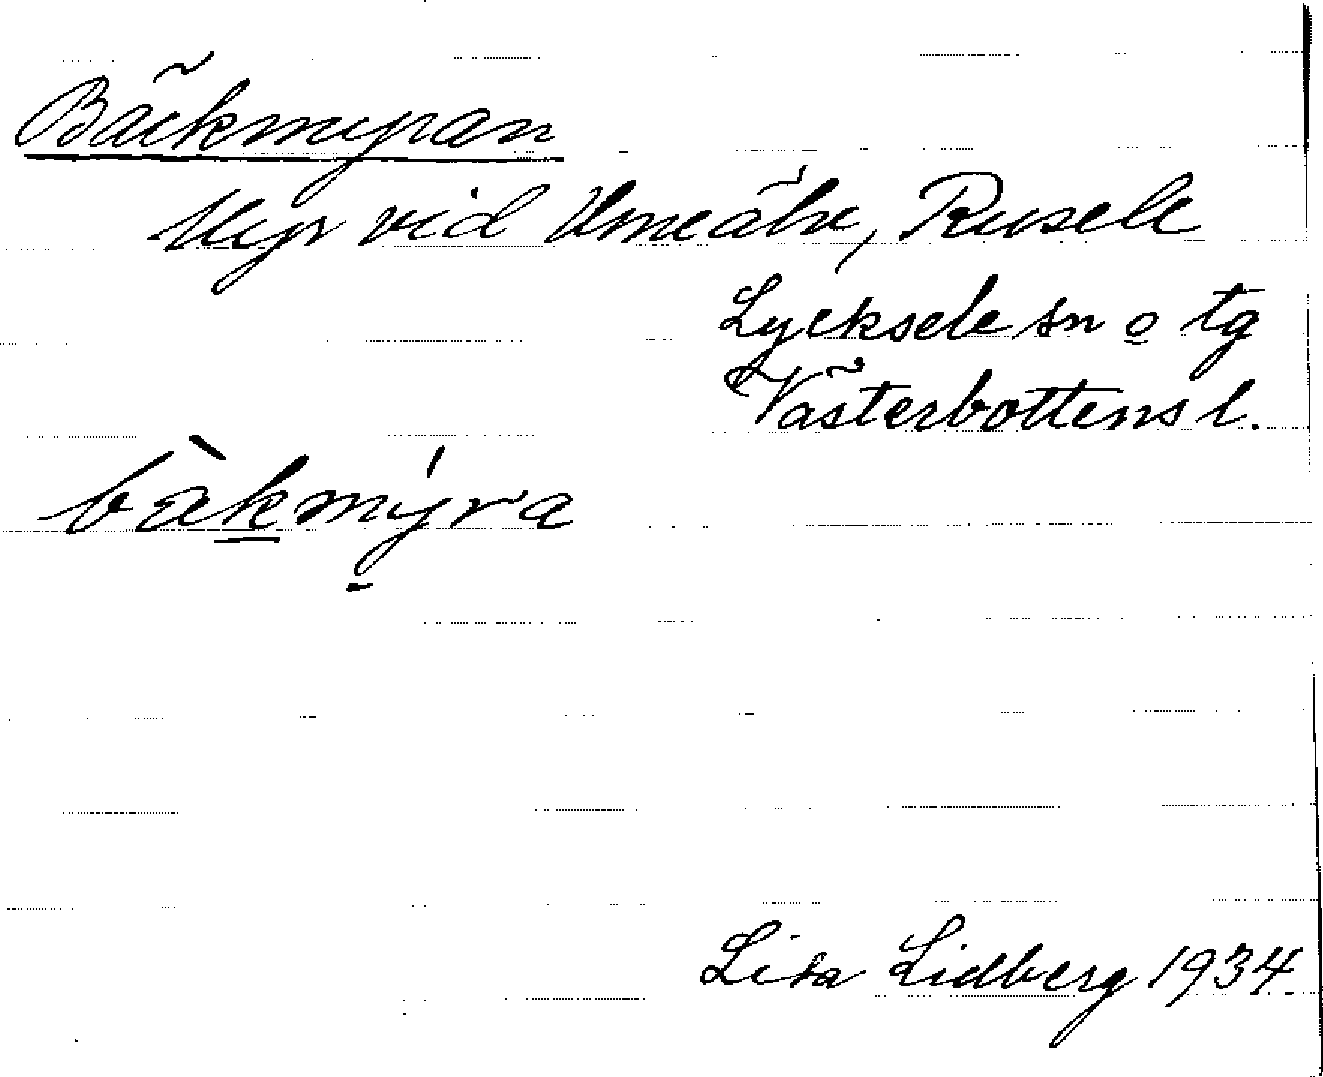 Bäckmyran
Myr vid Umeälv, Rusele
Lycksele sn o tg
Västerbottens l.
bà̠kmýra
Lisa Lidberg 1934